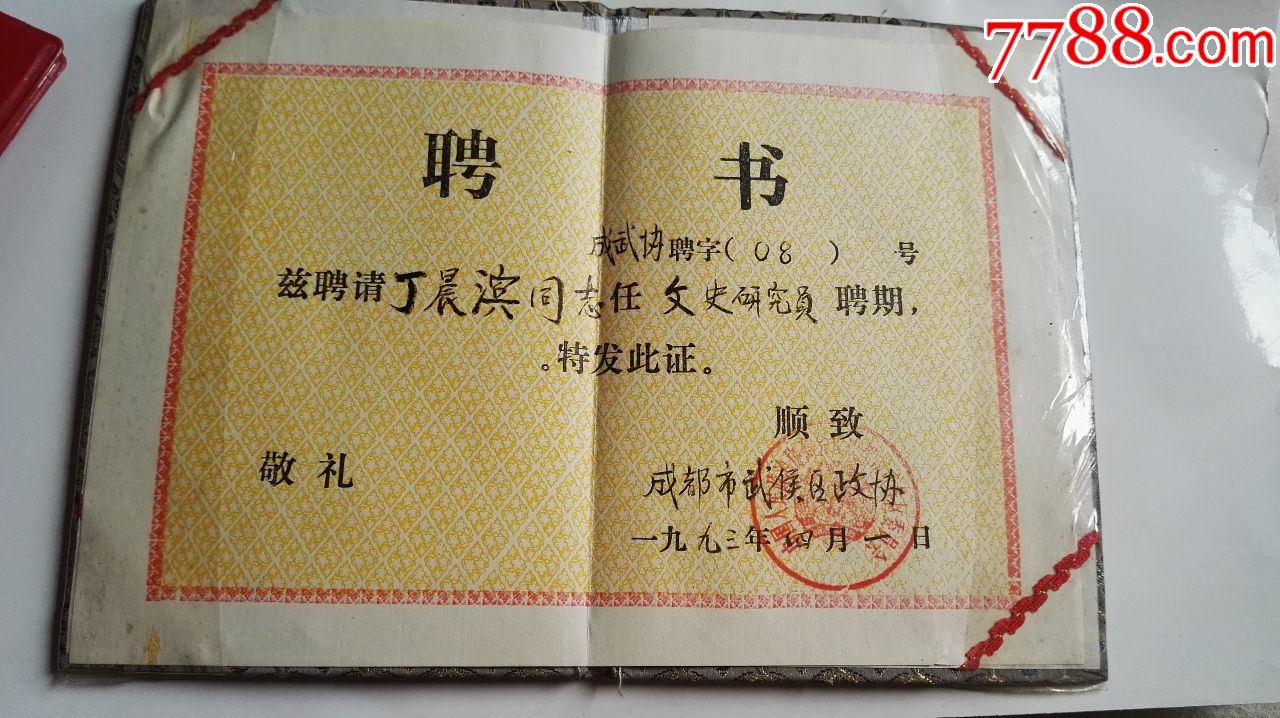 7788.com
聘 书
成武协聘字( 08 ) 号
兹聘请丁晨滨同志任文史研究员聘期,
。特发此证。
顺致
敬礼
成都市武侯区政协
一九九三年四月一日